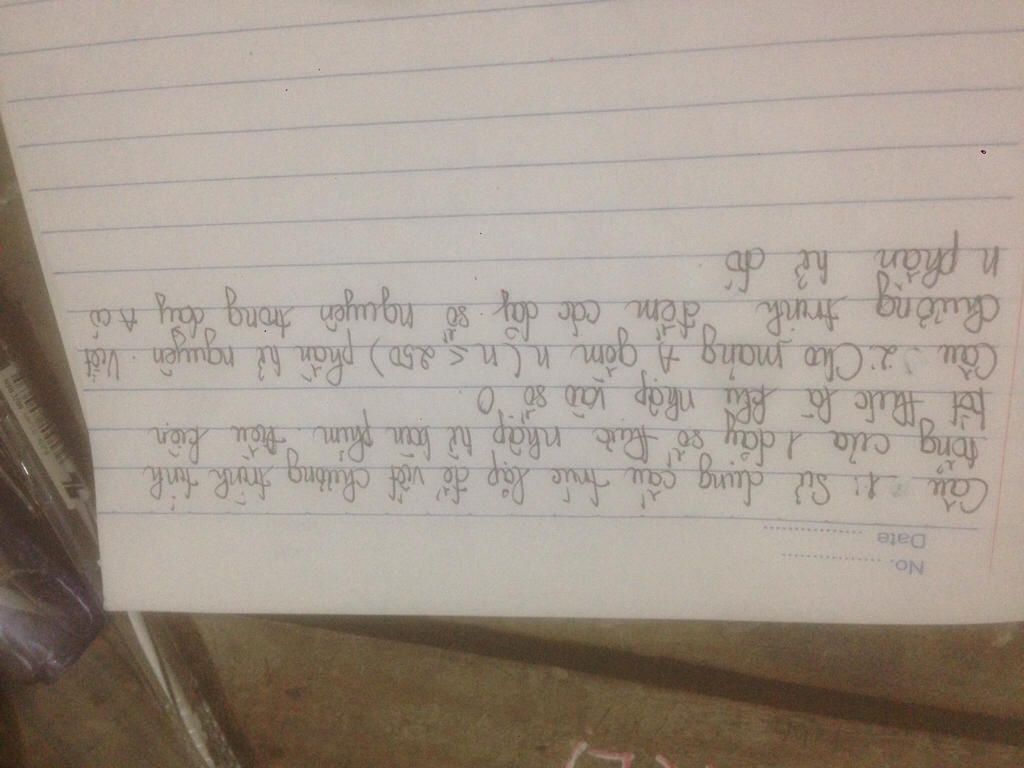 No. ..................
Date ..................
Câu 1: Sử dụng cấu trúc lặp để viết chương trình tính
tổng của 1 dãy số thực nhập từ bàn phím. Điều kiện
kết thúc là khi nhập vào số 0.
Câu 2: Cho mảng A gồm n (n ≤ 250) phần tử nguyên. Viết
chương trình đếm các dãy số nguyên trong dãy A có
n phần tử đó